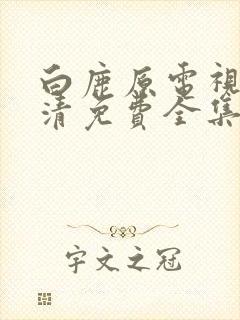 白鹿原電視
清免費全集
宇文之冠